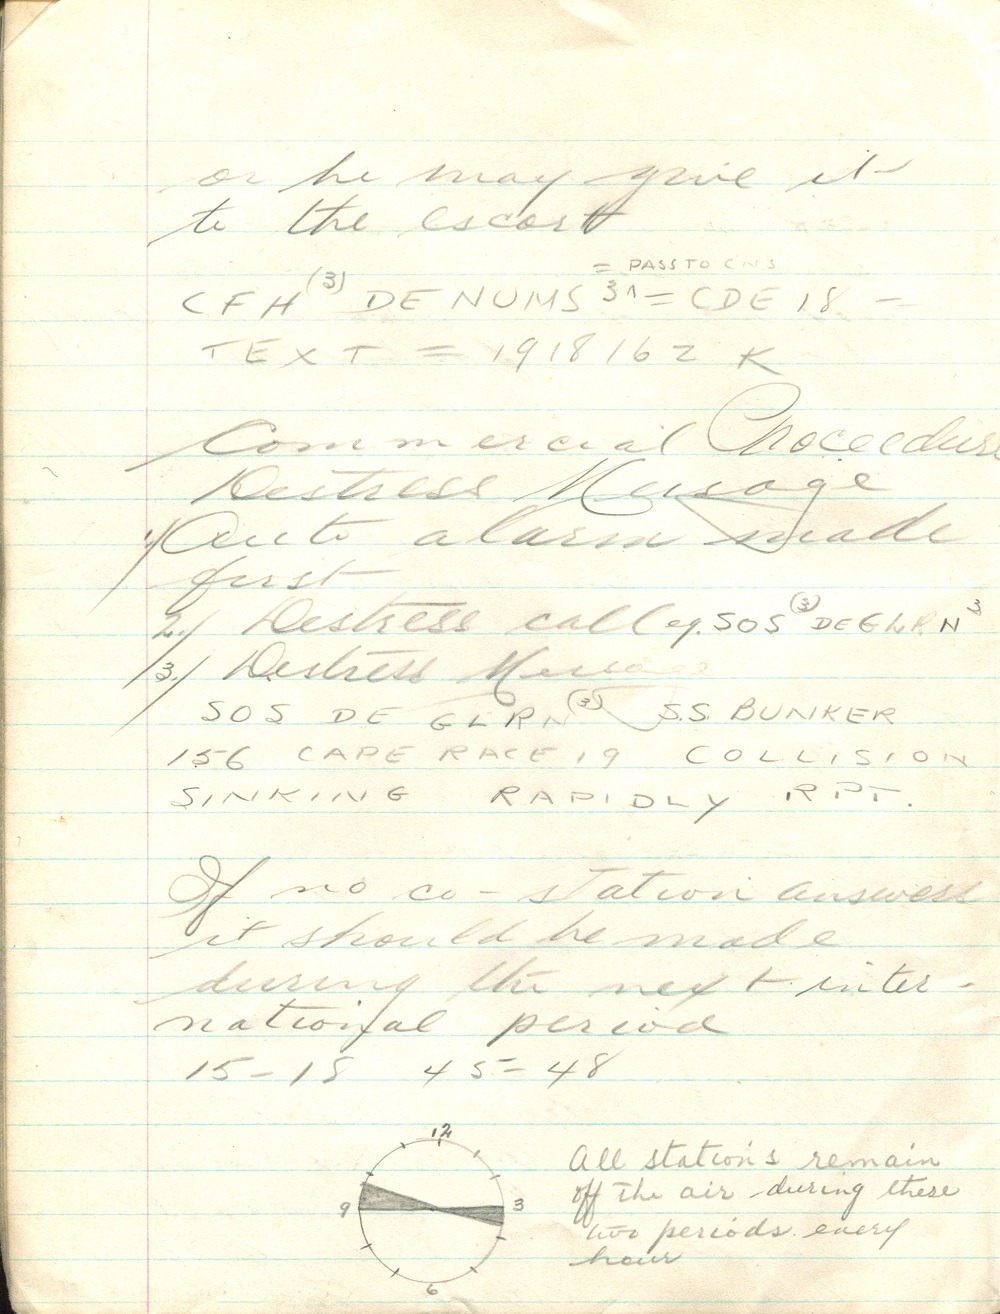 or he may give it
to the escort
= PASS TO CNS
CFH (3) DE NUMS 3 = CDE 18 =
TEXT = 191816Z K
Commercial Proceedure
Destress Message
1/ Auto alarm made
first
2./ Destress call eg. SOS (3) DE GLRN 3
3./ Destress Message
SOS DE GLRN (3) S.S. BUNKER
156 CAPE RACE 19 COLLISION
SINKING RAPIDLY RPT.
If no co-station answers
it should be made
during the next inter-
national period
15-18 45-48
12
9
3
6
All stations remain
off the air during these
two periods every
hour